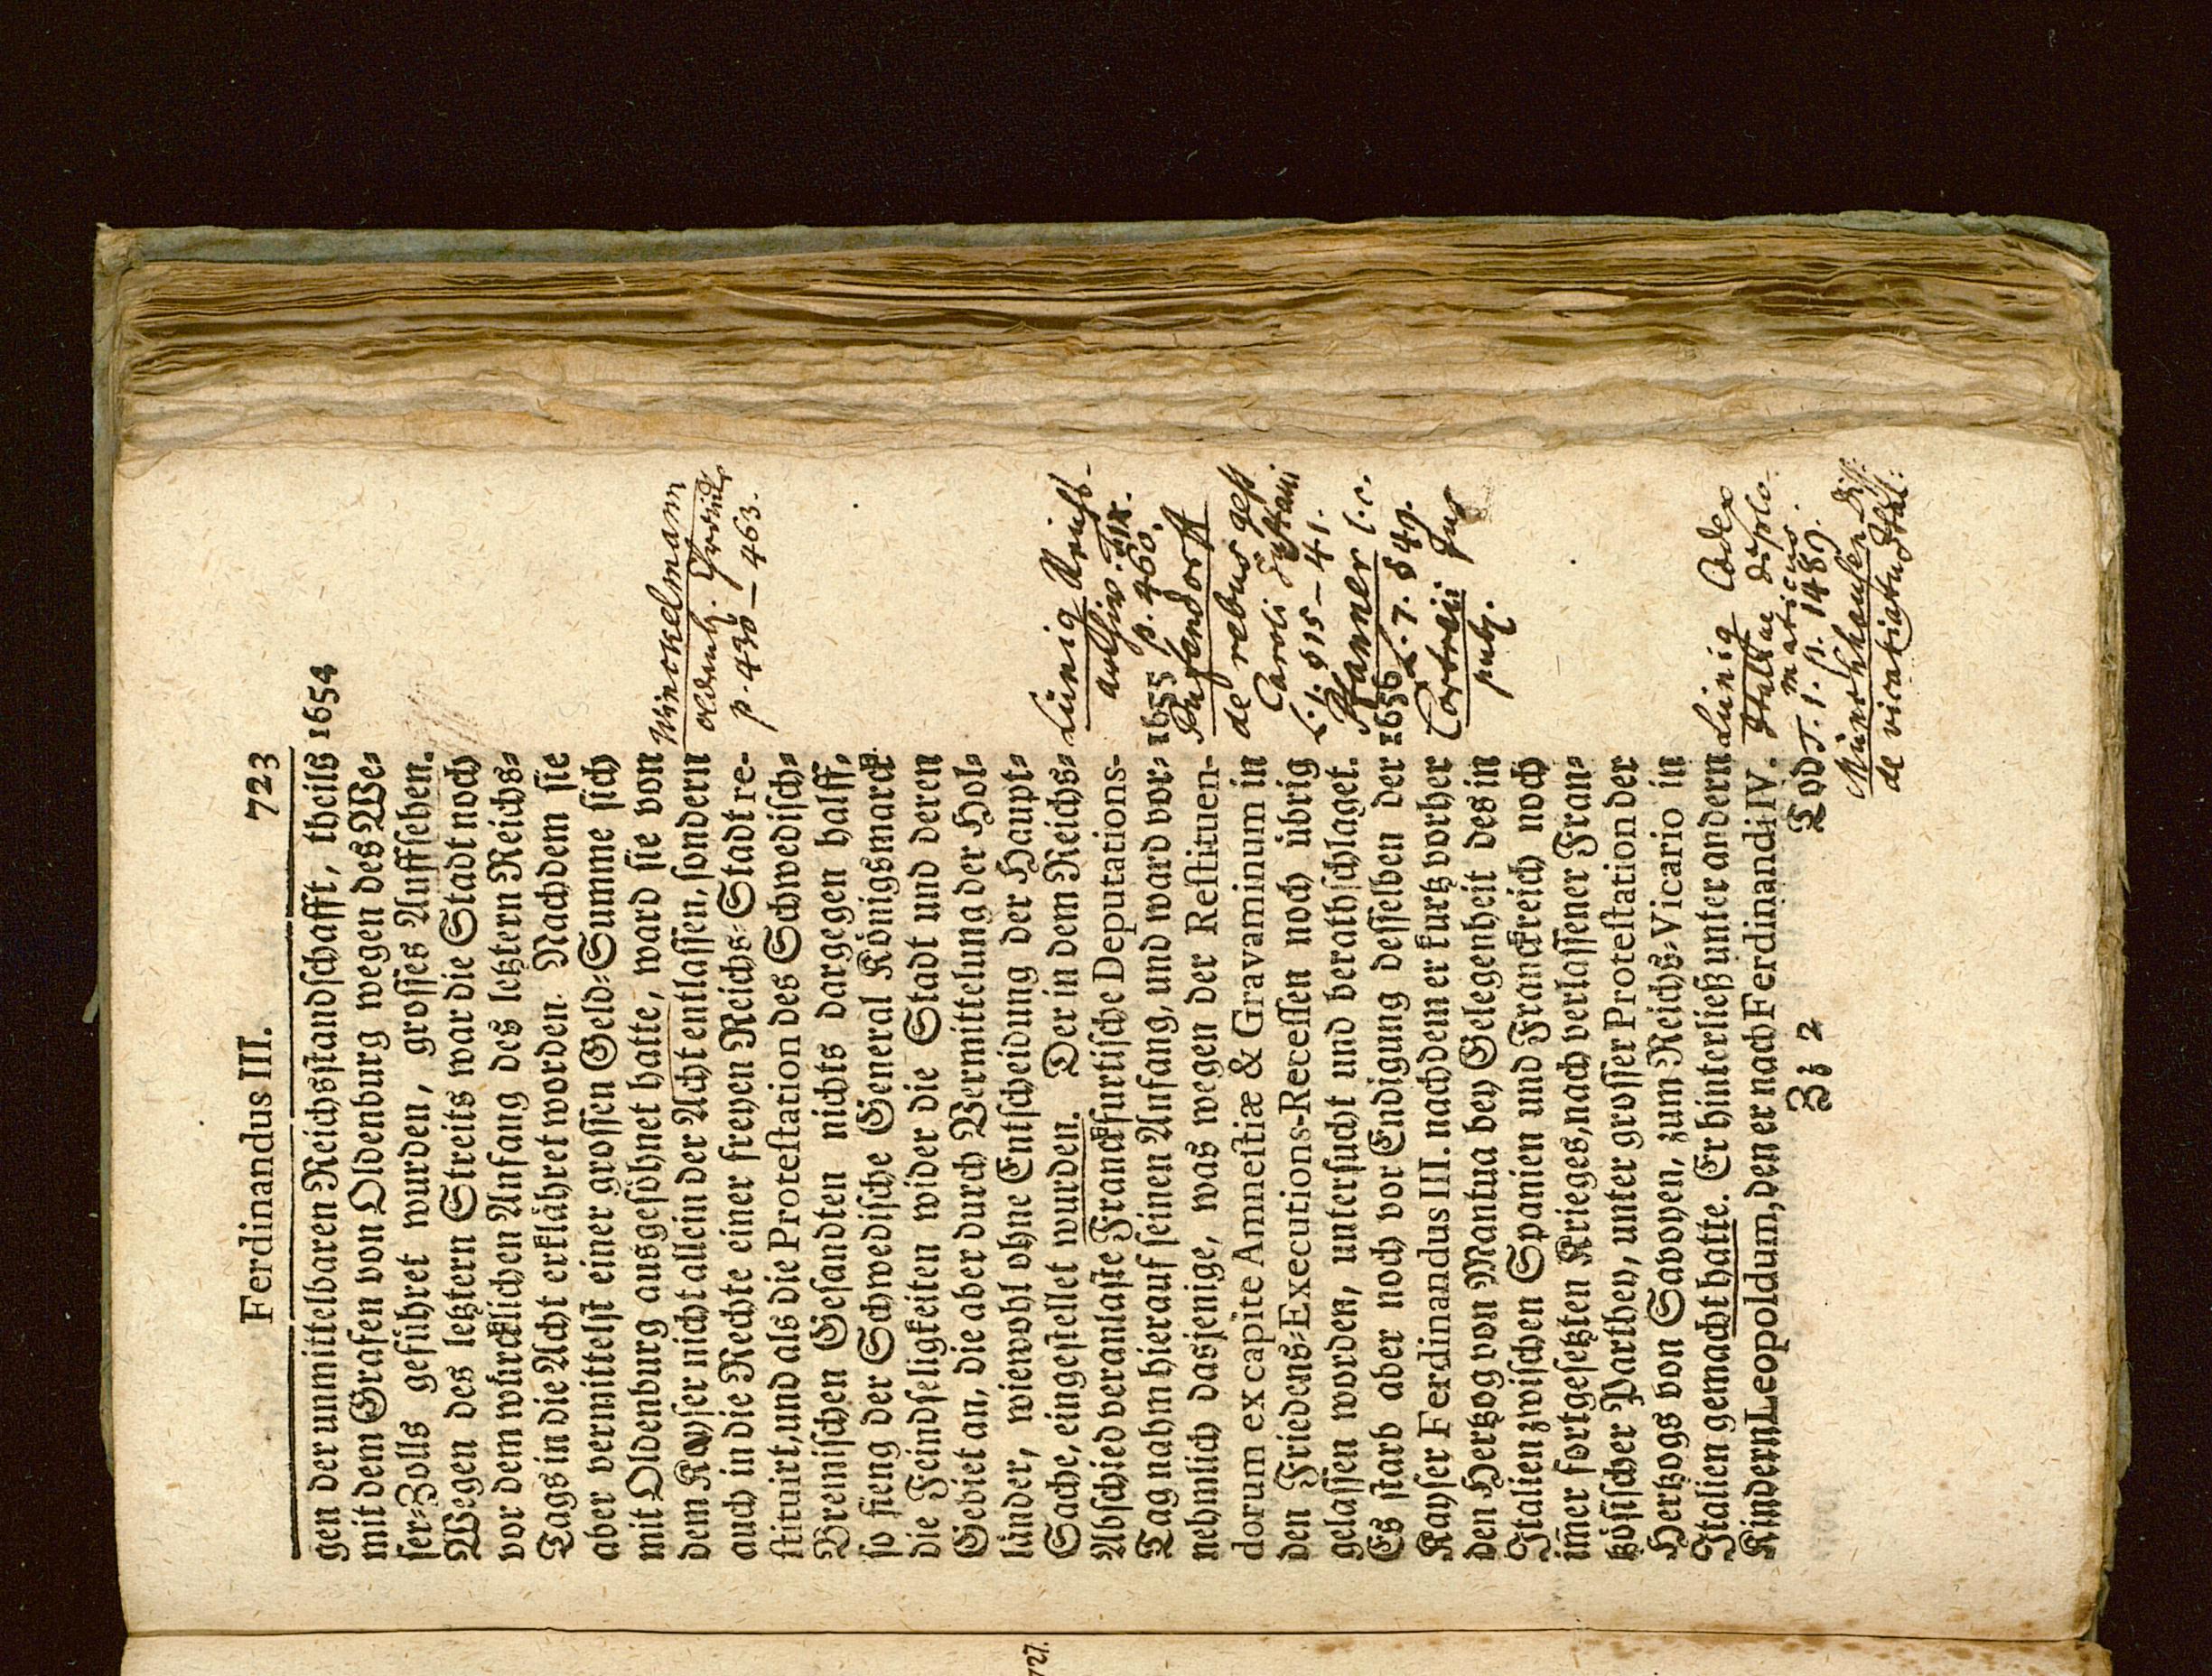 Ferdinandus III. 723
gen der unmittelbaren Reichsstandschafft, theils 1654
mit dem Grafen von Oldenburg wegen des We-
ser-Zolls geführet wurden, grosses Auffsehen.
Wegen des letztern Streits war die Stadt noch
vor dem würcklichen Anfang des letztern Reichs-
Tags in die Acht erklähret worden. Nachdem sie
aber vermittelst einer grossen Geld-Summe sich
mit Oldenburg ausgesöhnet hatte, ward sie von
dem Kayser nicht allein der Acht entlassen, sondern
auch in die Rechte einer freyen Reichs-Stadt re-
stituirt, und als die Protestation des Schwedisch-
Bremischen Gesandten nichts dargegen halff,
so fieng der Schwedische General Königsmarck
die Feindseligkeiten wider die Stadt und deren
Gebiet an, die aber durch Vermittelung der Hol-
länder, wiewohl ohne Entscheidung der Haupt-
Sache, eingestellet wurden. Der in dem Reichs-
Abschied veranlaste Franckfurtische Deputations-
Tag nahm hierauf seinen Anfang, und ward vor- 1655
nehmlich dasjenige, was wegen der Restituen-
dorum ex capite Amnestiæ & Gravaminum in
den Friedens-Executions-Recessen noch übrig
gelassen worden, untersucht und berathschlaget.
Es starb aber noch vor Endigung desselben der 1656
Kayser Ferdinandus III. nachdem er kurtz vorher
den Hertzog von Mantua bey Gelegenheit des in
Italien zwischen Spanien und Franckreich noch
im̃er fortgesetzten Krieges, nach verlassener Fran-
tzösischer Parthey, unter grosser Protestation der
Hertzogs von Savoyen, zum Reichs-Vicario in
Italien gemacht hatte. Er hinterließ unter andern
Kindern Leopoldum, den er nach Ferdinandi IV.
Zz 2 Tod
Winckelmann
oldenb.
p. 430 – 463.
Lünig Reichs-
archiv. T. IX.
p. 460.
Pufendorff
de rebus gest
Caroli Gustavi
L. 1. § 15 – 41.
Pfanner l. c.
L. 7. § 49.
Cortreii Jus
publ.
Lünig Codex
Italiae diplo-
maticus.
T. 1. p. 1489.
Münchhausen Diss:
de vicariatu Ital:
727.